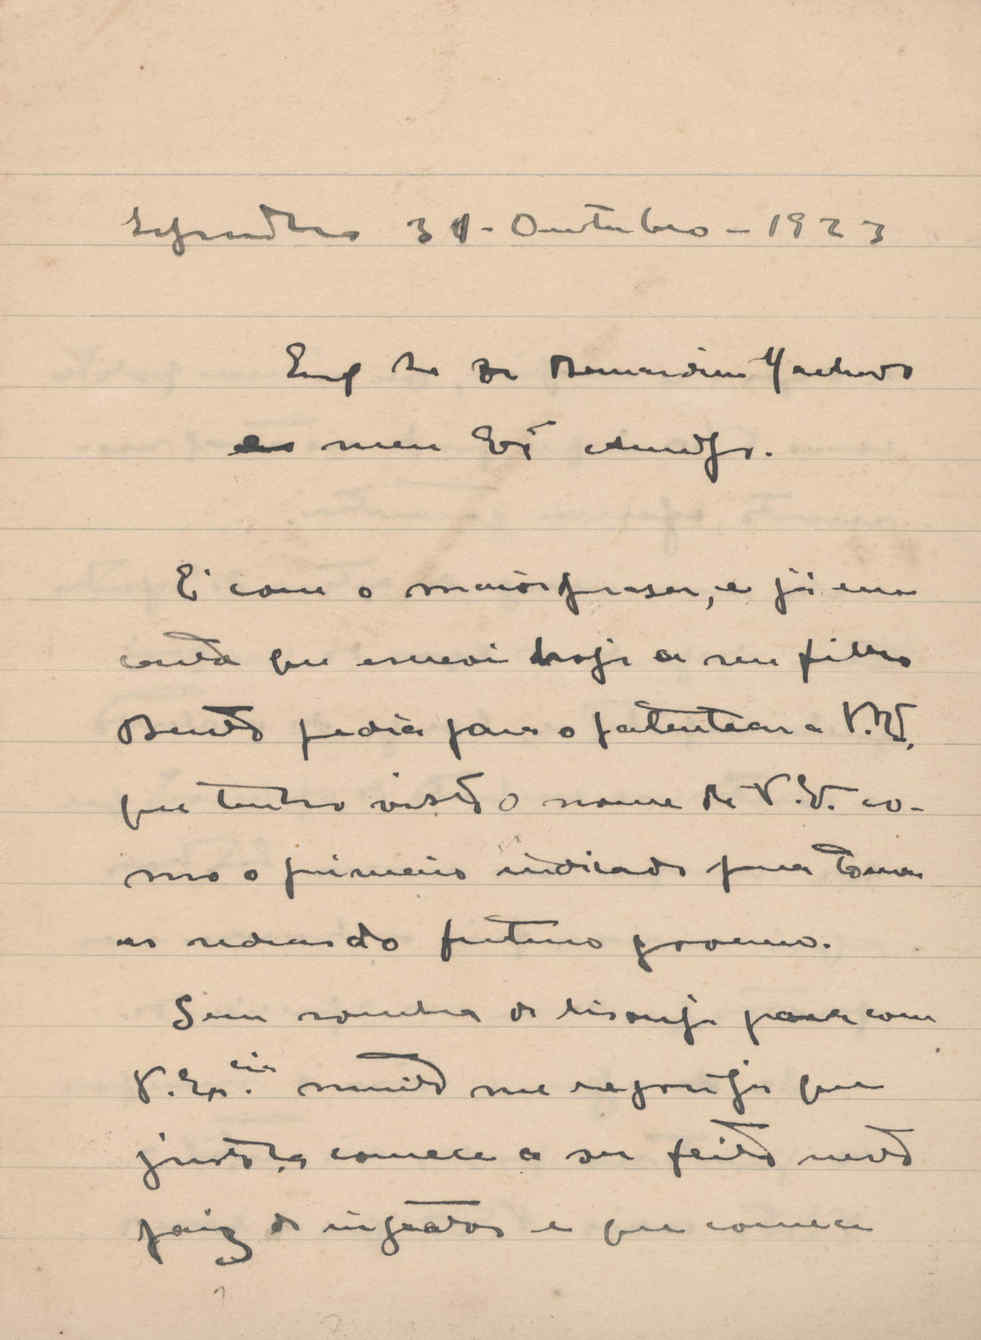 31 - Outubro - 1923
Sr Dr Bernardino Machado
meu amigo.
E' com o maior praser, e já em
carta que escrevi hoje a seu filho
Bento pedia para o patentear a V. Ex.
que tenho visto o nome de V. Ex. co-
mo o primeiro indicado para tomar
as redeas do futuro governo.
Sem sombra de lisonja para com
V. Ex.cia muito me regosijo que
justiça comece a ser feita neste
paiz de ingratos e que comece